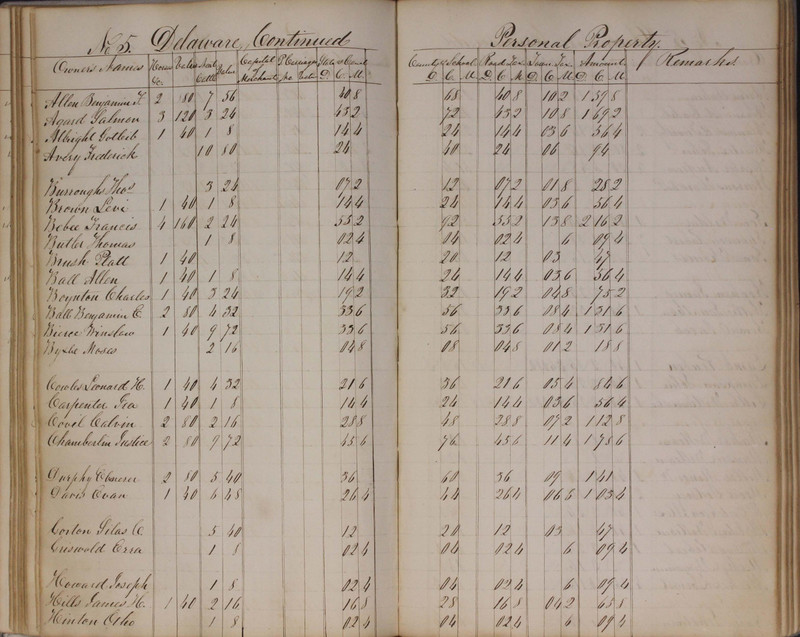 No 5. Delaware, Continued Personal Property.
Owners Names Horses &c. Value Neat Cattle Value Capital Merchants P. Carriages &c Value State & Canal D C M County & School D C M Road Tax D C M Town Tax D C M Amount D C M Remarks
Allen Benjamin F. 2 80 7 56 40 8 68 40 8 10 2 1 59 8
Agard Salmon 3 120 3 24 43 2 72 43 2 10 8 1 69 2
Albright Gotleib 1 40 1 8 14 4 24 14 4 03 6 56 4
Avery Frederick 10 80 24 40 24 06 94
Burroughs Thos 3 24 07 2 12 07 2 01 8 28 2
Brown Levi 1 40 1 8 14 4 24 14 4 03 6 56 4
Bebee Francis 4 160 2 24 55 2 92 55 2 13 8 2 16 2
Butler Thomas 1 8 02 4 04 02 4 6 09 4
Brush Platt 1 40 12 20 12 03 47
Ball Allen 1 40 1 8 14 4 24 14 4 03 6 56 4
Boynton Charles 1 40 3 24 19 2 32 19 2 04 8 75 2
Ball Benjamin C. 2 80 4 32 33 6 56 33 6 08 4 1 31 6
Bierce Winslow 1 40 9 72 33 6 56 33 6 08 4 1 31 6
Byxbe Moses 2 16 04 8 08 04 8 01 2 18 8
Cowles Leonard H. 1 40 4 32 21 6 36 21 6 05 4 84 6
Carpenter Ira 1 40 1 8 14 4 24 14 4 03 6 56 4
Covel Calvin 2 80 2 16 28 8 48 28 8 07 2 1 12 8
Chamberlin Justice 2 80 9 72 45 6 76 45 6 11 4 1 78 6
Durphy Ebenezer 2 80 5 40 36 60 36 09 1 41
Davis Evan 1 40 6 48 26 4 44 26 4 06 6 1 03 4
Gorton Silas C 5 40 12 20 12 03 47
Griswold Ezra 1 8 02 4 04 02 4 6 09 4
Howard Joseph 1 8 02 4 04 02 4 6 09 4
Hills James H. 1 40 2 16 16 8 28 16 8 04 2 65 8
Hinton Otho 1 8 02 4 04 02 4 6 09 4